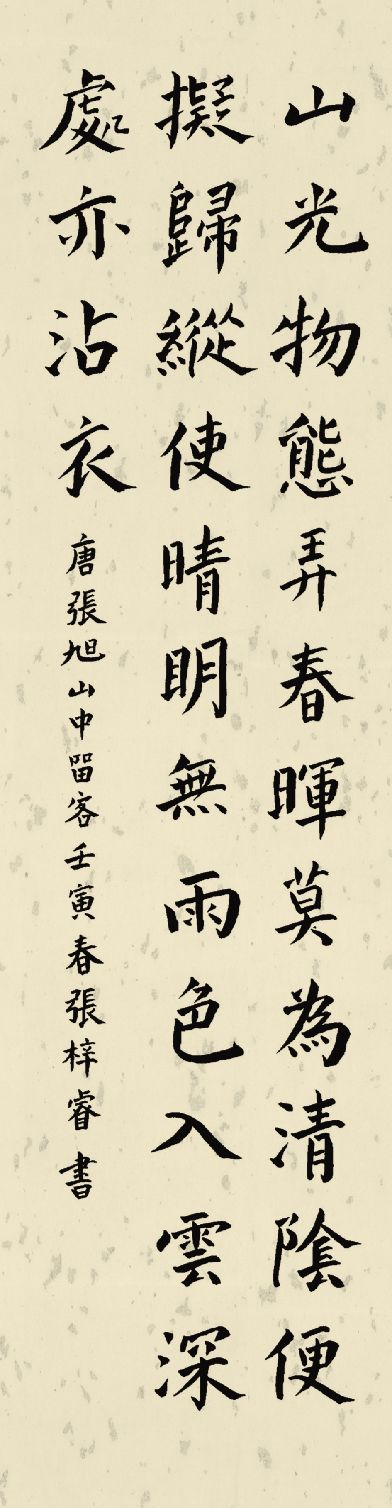 山光物態弄春暉莫為清陰便
擬歸縱使晴明無雨色入雲深
處亦沾衣
唐張旭山中留客壬寅春張梓睿書